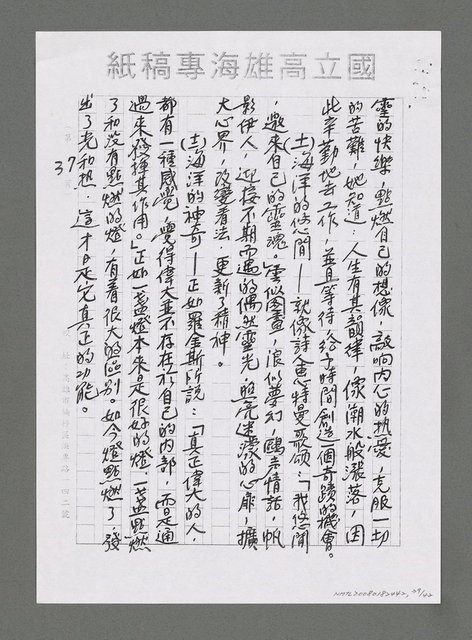 國立高雄海專稿紙
靈的快樂，點燃自己的想像，敲响内心的热爱，克服一切
的苦難，她知道：人生有其韻律，像潮水般漲落，因
此辛勤地去工作，並且等待，给予時間創造個奇蹟的機會。
(土)海洋的悠閒—就像詩人惠特曼歌頌：「我悠閒
，邀来自己的靈魂。」雲似图畫，浪似夢幻，鷗去情話，帆
影伊人，迎接不期而遇的偶然靈光，照亮迷濛的心扉，擴
大心界，改变看法，更新了精神。
(土)海洋的神奇—正如羅金斯所説：「真正偉大的人，
都有一種感覺，覺得偉大並不存在於自己的内部，而是通
過来發揮其作用。」正如一盏燈本来是很好的燈，一盏點燃
了和没有點燃的燈，有着很大的區别。如今燈點燃了，發
出了光和热，這才是它真正的功能。
37
第
址：高雄市楠梓區海專路一四二號
NMTL20080182442, 39/42